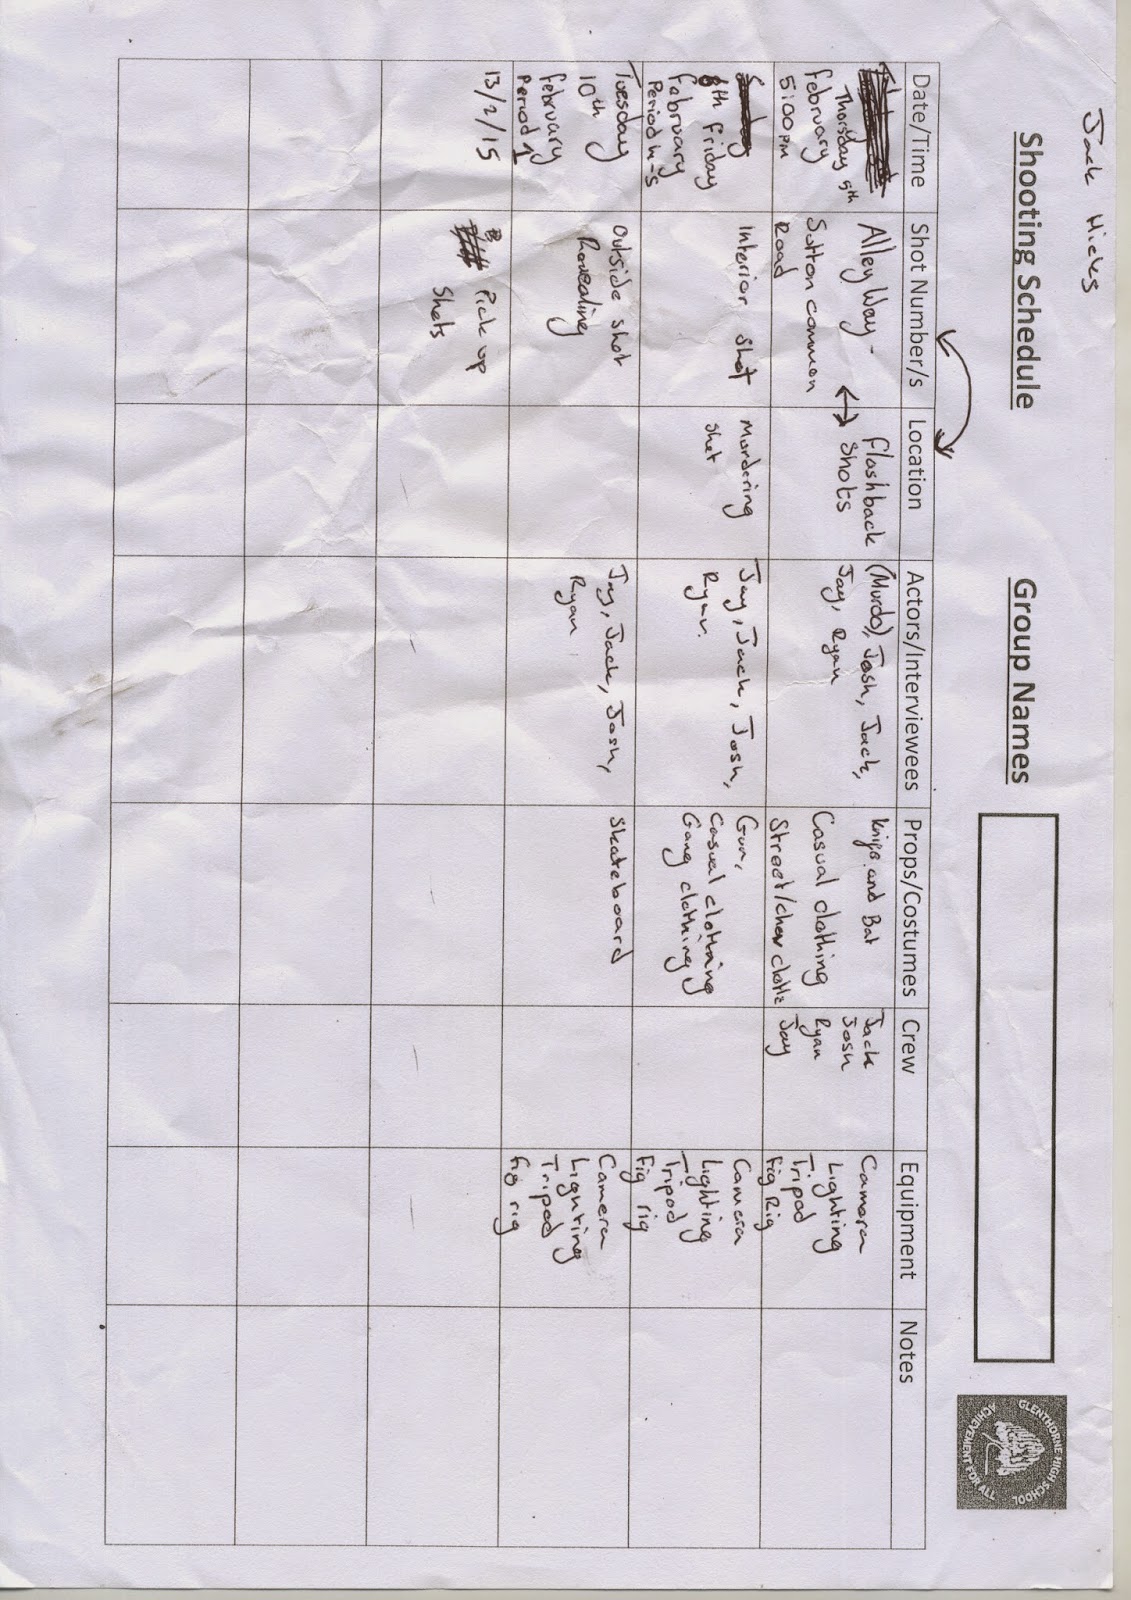 Jack Hicks
Shooting Schedule
Group Names
GLENTHORNE HIGH SCHOOL
ACHIEVEMENT FOR ALL
Date/Time
Shot Number/s
Location
Actors/Interviewees
Props/Costumes
Crew
Equipment
Notes
Thursday 5th
February
5:00pm
Alley Way -
Sutton common
Road
Flashback
Shots
(Murdo), Josh, Jack,
Jay, Ryan
Knife and Bat
Casual clothing
Street/chav
Jack
Josh
Ryan
Jay
Camera
Lighting
Tripod
Fig Rig
Friday
February
Period 4-5
Interior Shot
Murdering
Shot
Jay, Jack, Josh,
Ryan.
Gun,
Casual clothing
Gang clothing
Camera
Lighting
Tripod
Fig rig
Tuesday
10th
February
Period 1
Outside shot
Revealing
Jay, Jack, Josh,
Ryan
Skateboard
Camera
Lighting
Tripod
fig rig
13/2/15
Pick up
Shots